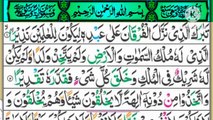 بِسْمِ اللهِ الرَّحْمٰنِ الرَّحِيْمِ
تَبٰرَكَ الَّذِيْ نَزَّلَ الْفُرْقَانَ عَلٰى عَبْدِهٖ لِيَكُوْنَ لِلْعٰلَمِيْنَ نَذِيْرًا
الَّذِيْ لَهٗ مُلْكُ السَّمٰوٰتِ وَالْاَرْضِ وَلَمْ يَتَّخِذْ وَلَدًا وَّلَمْ يَكُنْ
لَّهٗ شَرِيْكٌ فِي الْمُلْكِ وَخَلَقَ كُلَّ شَيْءٍ فَقَدَّرَهٗ تَقْدِيْرًا
وَاتَّخَذُوْا مِنْ دُوْنِهٖٓ اٰلِهَةً لَّا يَخْلُقُوْنَ شَيْـًٔا وَّهُمْ يُخْلَقُوْنَ